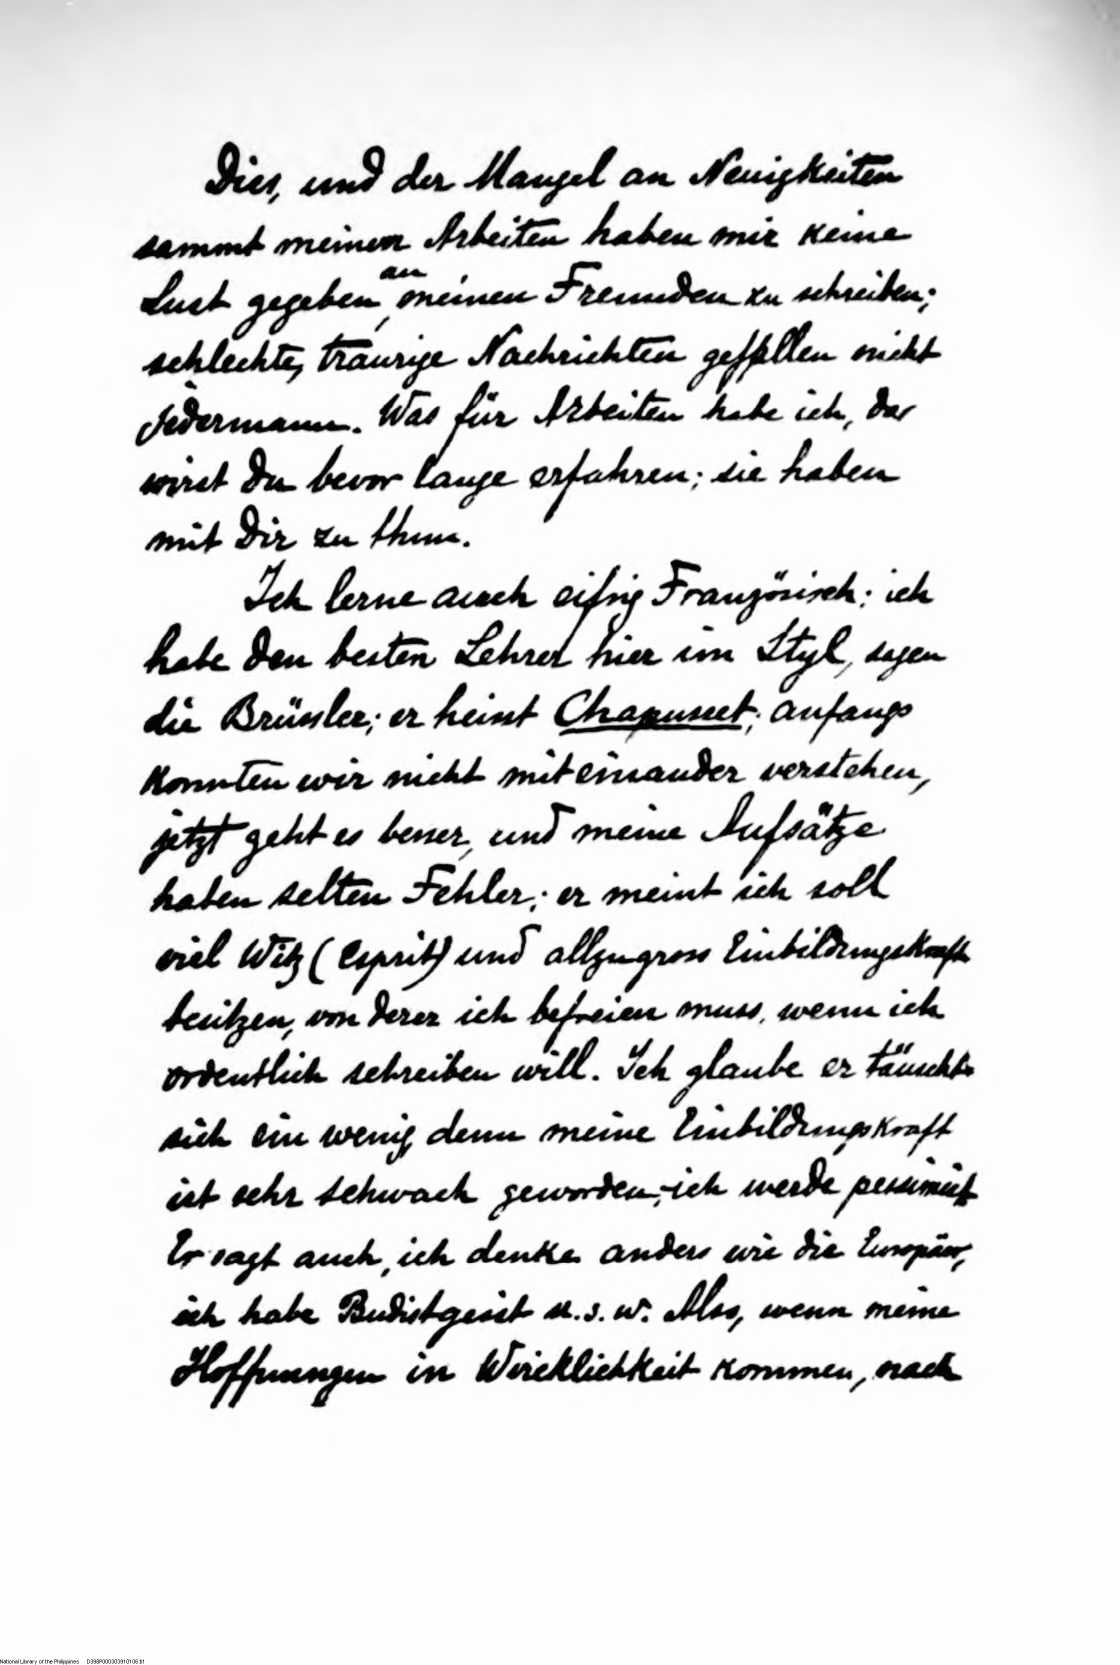 Dies, und der Mangel an Neuigkeiten
sammt meinen Arbeiten haben mir keine
Lust gegeben, an meinen Freunden zu schreiben;
schlechte, traurige Nachrichten gefallen nicht
jedermann. Was für Arbeiten habe ich, das
wirst Du bevor lange erfahren; sie haben
mit Dir zu thun.
Ich lerne auch eifrig Französisch; ich
habe den besten Lehrer hier im Styl, sagen
die Brüssler; er heisst Chapuseet; anfangs
konnten wir nicht miteinander verstehen,
jetzt geht es besser, und meine Aufsätze
haben selten Fehler; er meint ich soll
viel Witz (Esprit) und allzugross Einbildungskraft
besitzen, von derer ich befreien muss, wenn ich
ordentlich schreiben will. Ich glaube er täuscht
sich ein wenig, denn meine Einbildungskraft
ist sehr schwach geworden; ich werde pessimist
Er sagt auch, ich denke anders wie die Europäer,
ich habe Budistgeist u.s.w. Also, wenn meine
Hoffnungen in Wircklichkeit kommen, nach
National Library of the Philippines D398P000303910106.tif